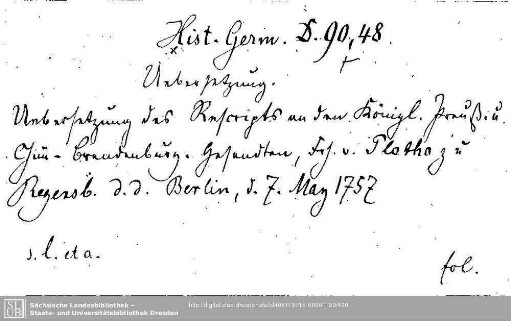 Hist. Germ. D. 90, 48.
Uebersetzung.
Uebersetzung des Rescripts an den Königl. Preuß. u.
Chur-Brandenburg. Gesandten, Frh. v. Plotho zu
Regensb. d. d. Berlin, d. 7. May 1757
s. l. et a.
fol.
SLUB
Sächsische Landesbibliothek –
Staats- und Universitätsbibliothek Dresden